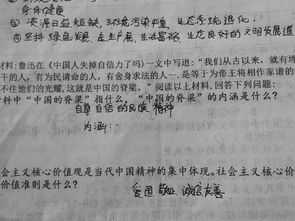 身体健康
② 资源日益短缺,环境污染严重,生态系统退化.
③ 坚持绿色发展,走生产发展,生活富裕,生态良好的文明发展道
材料:鲁迅在《中国人失掉自信力了吗》一文中写道:“我们从古以来,就有埋
干的人,有为民请命的人,有舍身求法的人……是等于为帝王将相作家谱的
不住他们的光耀,这就是中国的脊梁。”阅读以上材料,回答下列问题:
料中“中国的脊梁”指什么,“中国的脊梁”的内涵是什么?
自尊自信的民族精神
内涵:
会主义核心价值观是当代中国精神的集中体现。社会主义核心价
价值准则是什么?
爱国 敬业 诚信 友善